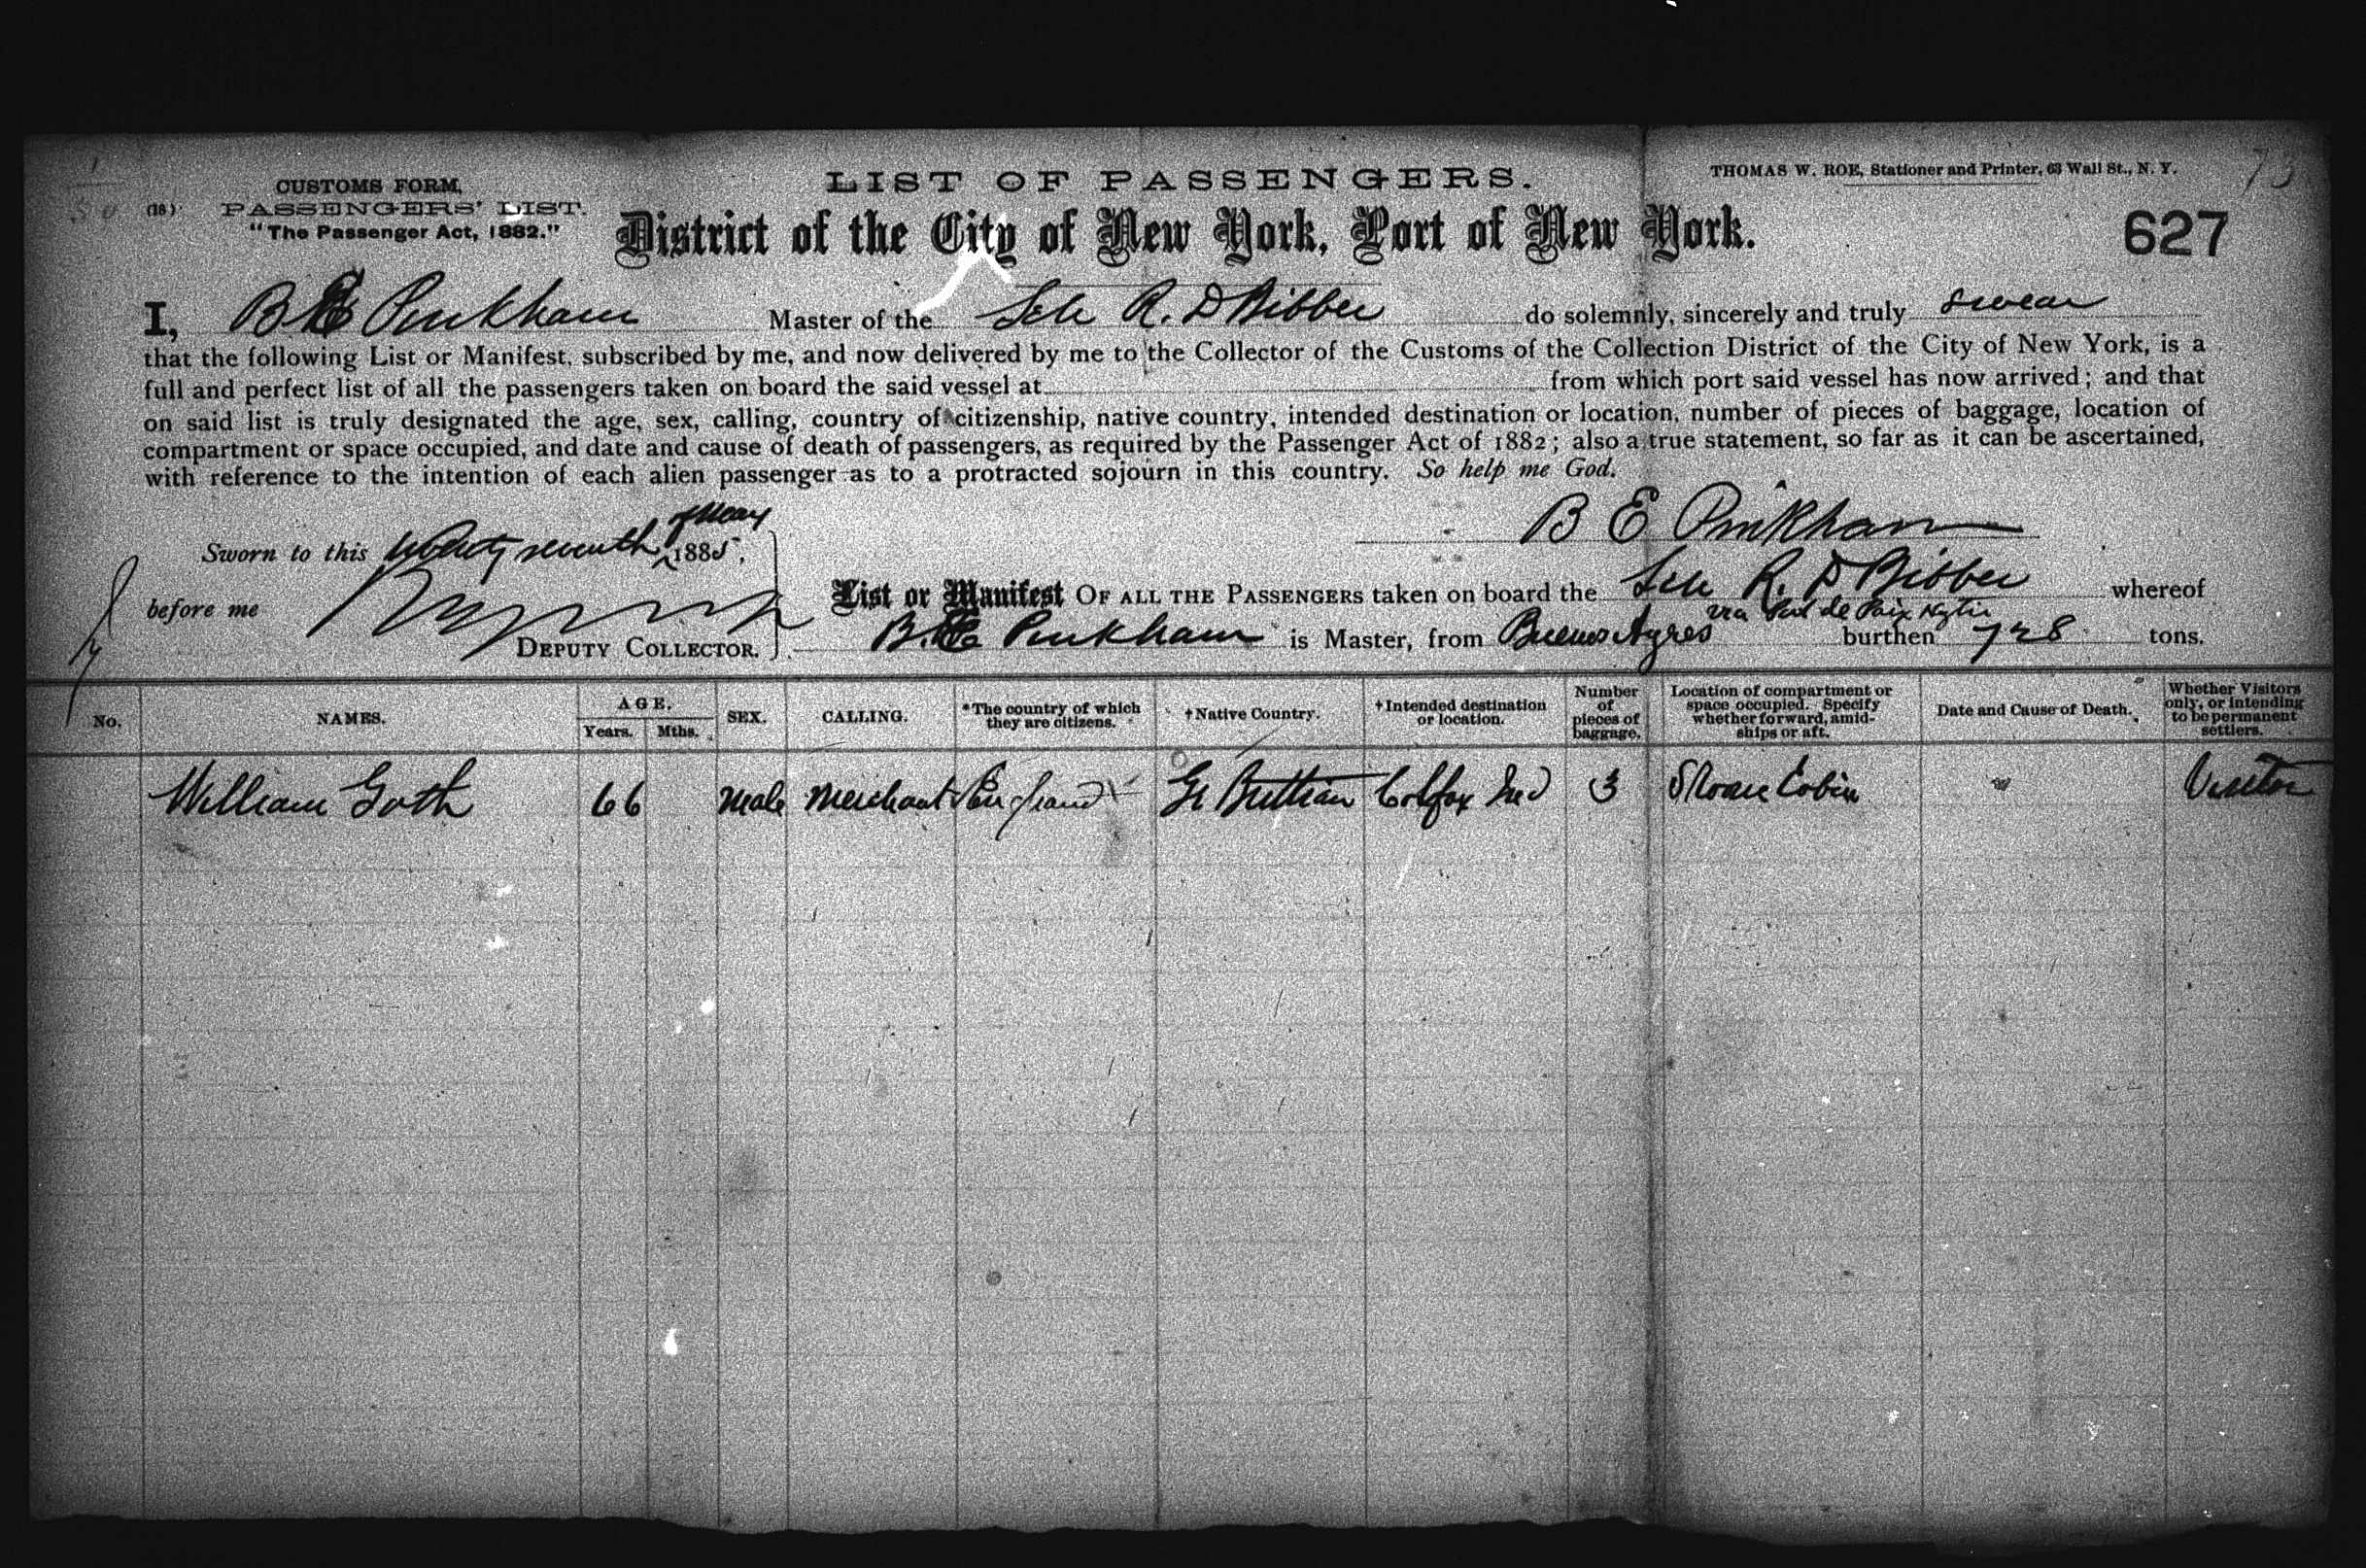 LIST OF PASSENGERS.
THOMAS W. ROE, Stationer and Printer, 63 Wall St., N. Y.
73
CUSTOMS FORM,
(18) PASSENGERS' LIST.
"The Passenger Act, 1882."
District of the City of New York, Port of New York.
627
I, B E Pinkham Master of the Sch R. D Bibber do solemnly, sincerely and truly swear
that the following List or Manifest, subscribed by me, and now delivered by me to the Collector of the Customs of the Collection District of the City of New York, is a
full and perfect list of all the passengers taken on board the said vessel at from which port said vessel has now arrived; and that
on said list is truly designated the age, sex, calling, country of citizenship, native country, intended destination or location, number of pieces of baggage, location of
compartment or space occupied, and date and cause of death of passengers, as required by the Passenger Act of 1882; also a true statement, so far as it can be ascertained,
with reference to the intention of each alien passenger as to a protracted sojourn in this country. So help me God.
B E Pinkham
Sworn to this twenty seventh of May 1885,
before me
DEPUTY COLLECTOR.
List or Manifest OF ALL THE PASSENGERS taken on board the Sch R. D Bibber whereof
via Port de Paix Hytie
B. E. Pinkham is Master, from Buenos Ayres burthen 728 tons.
No. NAMES. AGE. Years. Mths. SEX. CALLING. *The country of which they are citizens. †Native Country. †Intended destination or location. Number of pieces of baggage. Location of compartment or space occupied. Specify whether forward, amidships or aft. Date and Cause of Death. Whether Visitors only, or intending to be permanent settlers.
William Goth 66 Male Merchant England Gt Brittian Colfax Ind 3 Cabin Visitor